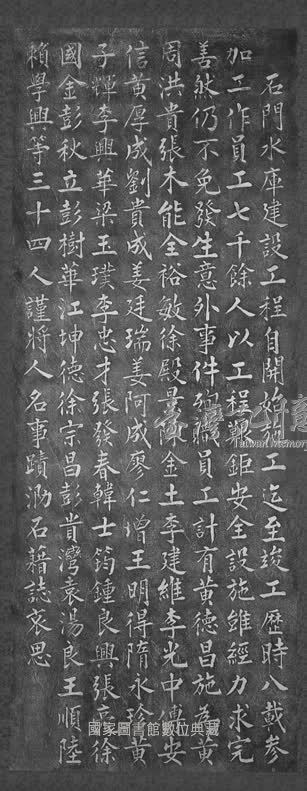 石門水庫建設工程自開始施工迄至竣工歷時八載參
加工作員工七千餘人以工程艱鉅安全設施雖經力求完
善然仍不免發生意外事件殉職員工計有黃德昌施為黃
周洪貴張木能全裕敏徐殿景陳金土李建維李光中傅安
信黃厚成劉貴成姜廷瑞姜阿成廖仁增王明得隋永珍黃
子輝李興華梁王璞李忠才張發春韓士筠鍾良興張 徐
國金彭秋立彭樹華江坤德徐宗昌彭貴灣袁湯良王順陸
賴學興等三十四人謹將人名事蹟泐石藉誌哀思
Taiwan Memory
國家圖書館數位典藏